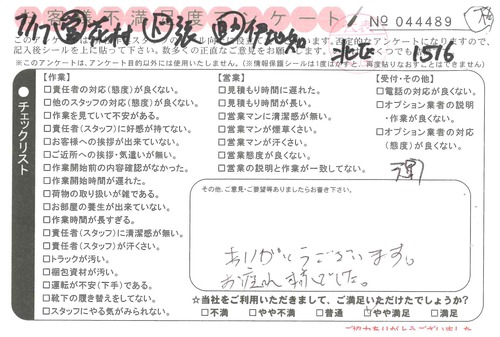 お客様不満足度アンケート
No 044489
7/17 花村 伊地知 北辻 1516
記入後シールを上に貼って下さい。数多くの正直なご意見をお願い
※このアンケートは、アンケート目的以外には使用いたしません。(※情報保護シールは1度はがすと、再度貼りなおすことはできません)
チェックリスト
【作業】
□責任者の対応(態度)が良くない。
□他のスタッフの対応(態度)が良くない。
□作業を見ていて不安がある。
□責任者(スタッフ)に好感が持てない。
□お客様への挨拶が出来ていない。
□ご近所への挨拶・気遣いが無い。
□作業開始前の内容確認がなかった。
□作業開始時間が遅れた。
□荷物の取り扱いが雑である。
□お部屋の養生が出来ていない。
□作業時間が長すぎる。
□責任者(スタッフ)に清潔感が無い。
□責任者(スタッフ)が汗くさい。
□トラックが汚い。
□梱包資材が汚い。
□運転が不安(下手)である。
□靴下の履き替えをしてない。
□スタッフにやる気がみられない。
【営業】
□見積もり時間に遅れた。
□見積もり時間が長い。
□営業マンに清潔感が無い。
□営業マンが煙草くさい。
□営業マンが汗くさい。
□営業態度が良くない。
□営業の説明と作業が一致してない。
【受付・その他】
□電話の対応が良くない。
□オプション業者の説明・作業が良くない。
□オプション業者の対応(態度)が良くない。
その他、ご意見・ご要望等ありましたらお書き下さい。
ありがとうございます。
お疲れ様でした。
☆当社をご利用いただきまして、ご満足いただけたでしょうか?
□不満 □やや不満 □普通 □やや満足 □満足
ご協力ありがとうございました